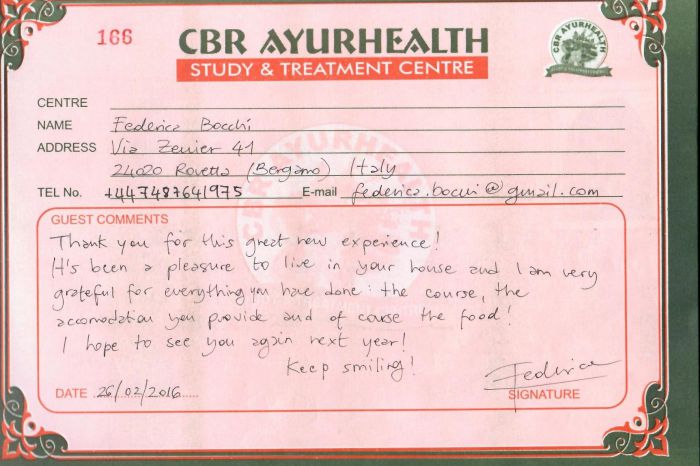 166
CBR AYURHEALTH
STUDY & TREATMENT CENTRE
CBR AYURHEALTH
CENTRE
NAME Federica Bocchi
ADDRESS Via Zenier 41
24020 Rovetta (Bergamo) Italy
TEL No. +447487641975 E-mail federica.bocchi@gmail.com
GUEST COMMENTS
Thank you for this great new experience!
It's been a pleasure to live in your house and I am very
grateful for everything you have done: the course, the
accomodation you provide and of course the food!
I hope to see you again next year!
Keep smiling!
Federica
DATE 26/02/2016 SIGNATURE